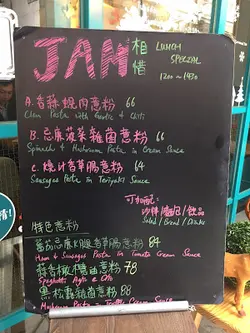 JAM 相借
LUNCH
SPECIAL
1200 ~ 1430
A. 香蒜蜆肉意粉 66
Clam Pasta with Garlic & Chili
B. 忌廉菠菜雜菌意粉 66
Spinach & Mushroom Pasta in Cream Sauce
C. 燒汁香草腸意粉 64
Sausages Pasta in Teriyaki Sauce
可加配:
沙律/麵包/飲品
Salad / Bread / Drinks
特色意粉
蕃茄忌廉火腿香草腸意粉 84
Ham & Sausages Pasta in Tomato Cream Sauce
蒜香橄欖油意粉 78
Spaghetti Aglio e Olio
黑松露雜菌意粉 88
Mushroom Pasta in Truffle Cream Sauce